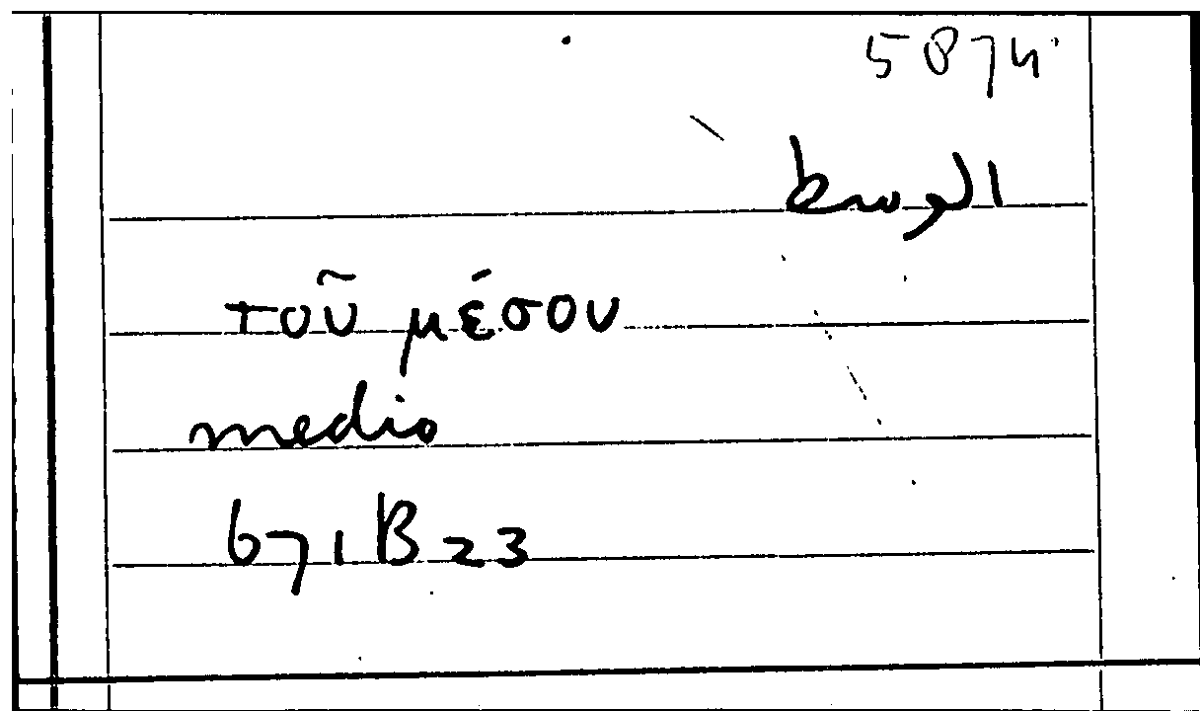 5874
الوسط
τοῦ μέσου
medio
671B23